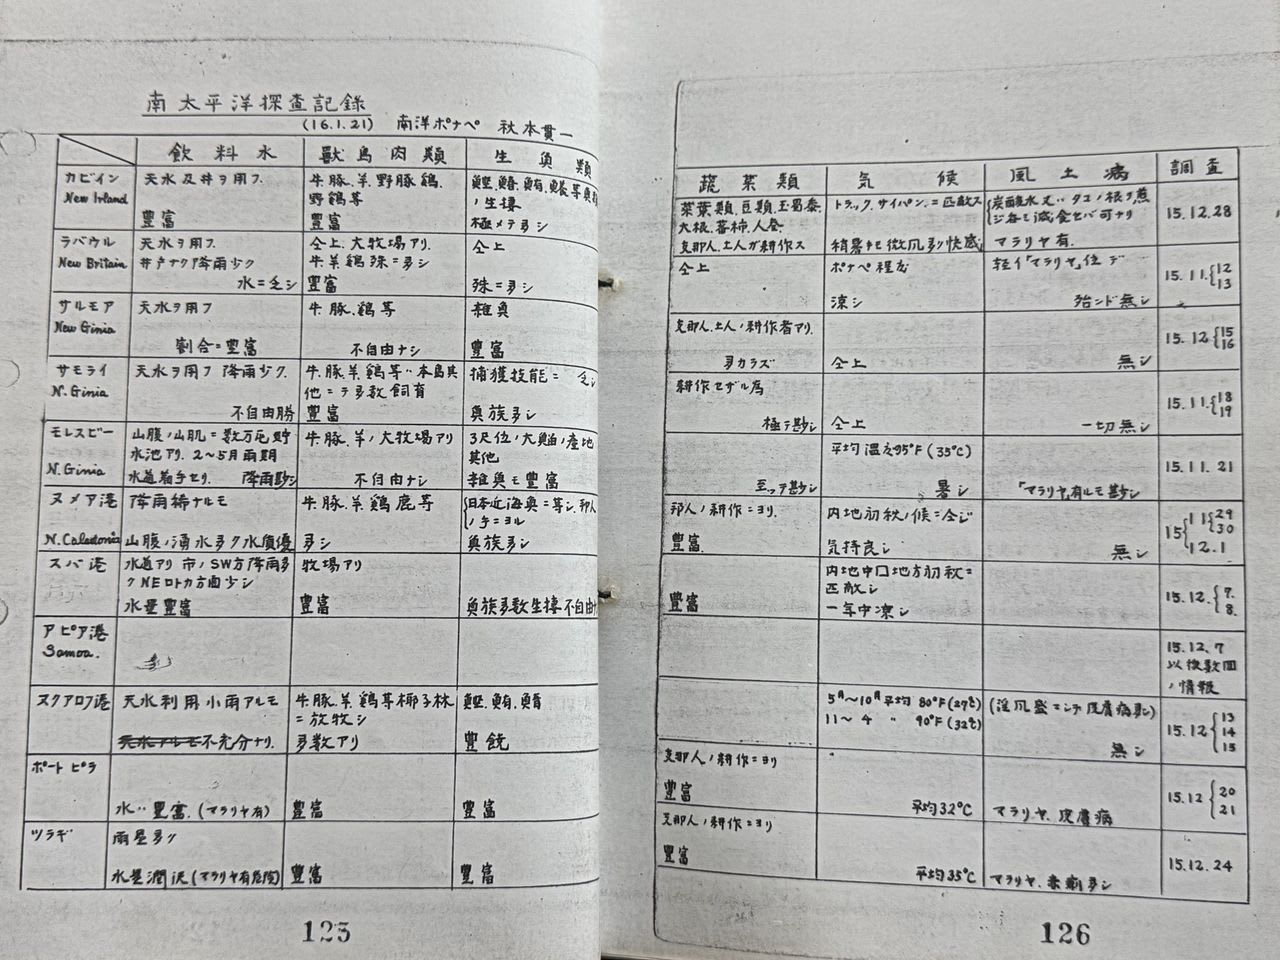 南太平洋探査記録
(16.1.21) 南洋ポナペ 秋本貫一
飲料水 獸鳥肉類 生魚類
カビイン
New Irland
天水及井ヲ用フ.
豊富
牛.豚.羊.野豚鶏.
野鶏等
豊富
極メテ多シ
ラバウル
New Britain
天水ヲ用フ.
井戸ナク降雨少ク
水ニ乏シ
仝上.大牧場アリ.
牛羊鶏殊ニ多シ
豊富
仝上
殊ニ多シ
サルモア
New Ginia
天水ヲ用フ
割合ニ豊富
牛.豚.鶏等
不自由ナシ
雑魚
豊富
サモライ
N.Ginia
天水ヲ用フ 降雨少ク.
不自由勝
牛.豚.羊.鶏等ハ本島其
他ニテ多数飼育
豊富
捕獲技能ニ乏シ
魚族多シ
モレスビー
N.Ginia
山腹ノ山肌ニ数万屯貯
水池アリ. 2〜5月雨期
水道着手セリ. 降雨尠シ
牛.豚.羊ノ大牧場アリ
不自由ナシ
3尺位ノ大鮪ノ産地
其他
雑魚モ豊富
ヌメア港
N.Caledonia
降雨稀ナルモ
山腹ノ湧水多ク水質優
牛.豚.羊.鶏鹿等
多シ
日本近海魚ニ等シ.邦人
ノ手ニヨル
魚族多シ
スバ港
水道アリ 市ノSW方降雨多
クNEロトカ方面少シ
水量豊富
牧場アリ
豊富
魚族多数生棲.不自由ナ
アピア港
Samoa.
ヌクアロフ港
天水利用小雨アルモ
不充分ナリ.
牛.豚.羊.鶏等椰子林
ニ放牧シ
多数アリ
鰹.鮪.鯖
豊饒
ポートビラ
水ハ豊富.(マラリヤ有)
豊富
豊富
ツラギ
雨量多ク
水量潤沢(マラリヤ有危険)
豊富
豊富
125
蔬菜類 気候 風土病 調査
菜葉類.豆類.玉蜀黍.
大根.蕃柿.人参.
支那人.土人ガ耕作ス
トラック.サイパン.ニ匹敵ス
稍暑キモ微風多ク快感
マラリヤ有.
15.12.28
仝上
ポナペ程度
涼シ
軽イ「マラリヤ」位デ
殆ンド無シ
15.11.{12
13
支那人.土人ノ耕作者アリ.
多カラズ
仝上
無シ
15.12{15
16
耕作セザル為
極テ尠シ
仝上
一切無シ
15.11.{18
19
至ッテ尠シ
平均温度95°F(35℃)
暑シ
「マラリヤ」有ルモ尠シ
15.11.21
邦人ノ耕作ニヨリ.
豊富.
内地初秋ノ候ニ仝ジ
気持良シ
無シ
15{11{29
30
12.1
豊富
内地中口地方初秋ニ
匹敵シ
一年中凉シ
15.12.{7.
8.
15.12.7
以後数回
ノ情報
5月〜10月平均 80°F(27℃)
11〜4 〃 90°F(32℃)
(湿気盛ニシテ皮膚病多シ)
無シ
15.12{13
14
15
支那人ノ耕作ニヨリ
豊富
平均32°C
マラリヤ、皮膚病
15.12{20
21
支那人ノ耕作ニヨリ
豊富
平均35℃
マラリヤ.赤痢多シ
15.12.24
126